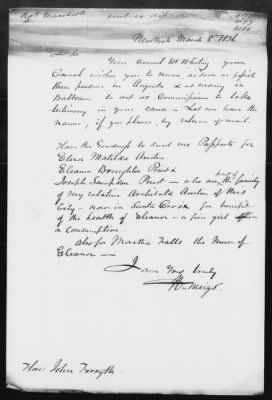 New York March 8. 1836
Dear Sir
Your Counsel Mr Whiting, your
Counsel wishes you to name, as soon as possible
three persons in Augusta & as many in
Baltimore to act as Commissioners to take
testimony in your cause – Let me have the
names, if you please, by return of mail.
Have the Goodness to send me Passports for
Clara Matilda Austin
Eleanor Broughton Prout &
Joseph Sampson Prout – who are part of the family
of my relative Archibald Austin of this
City – now in Santa Croix for benefit
of the health of Eleanor – a fine girl
a consumption.
Also for Martha Falls the Nurse of
Eleanor –
I am Yrs truly
H. Meigs.
Hon: John Forsyth.